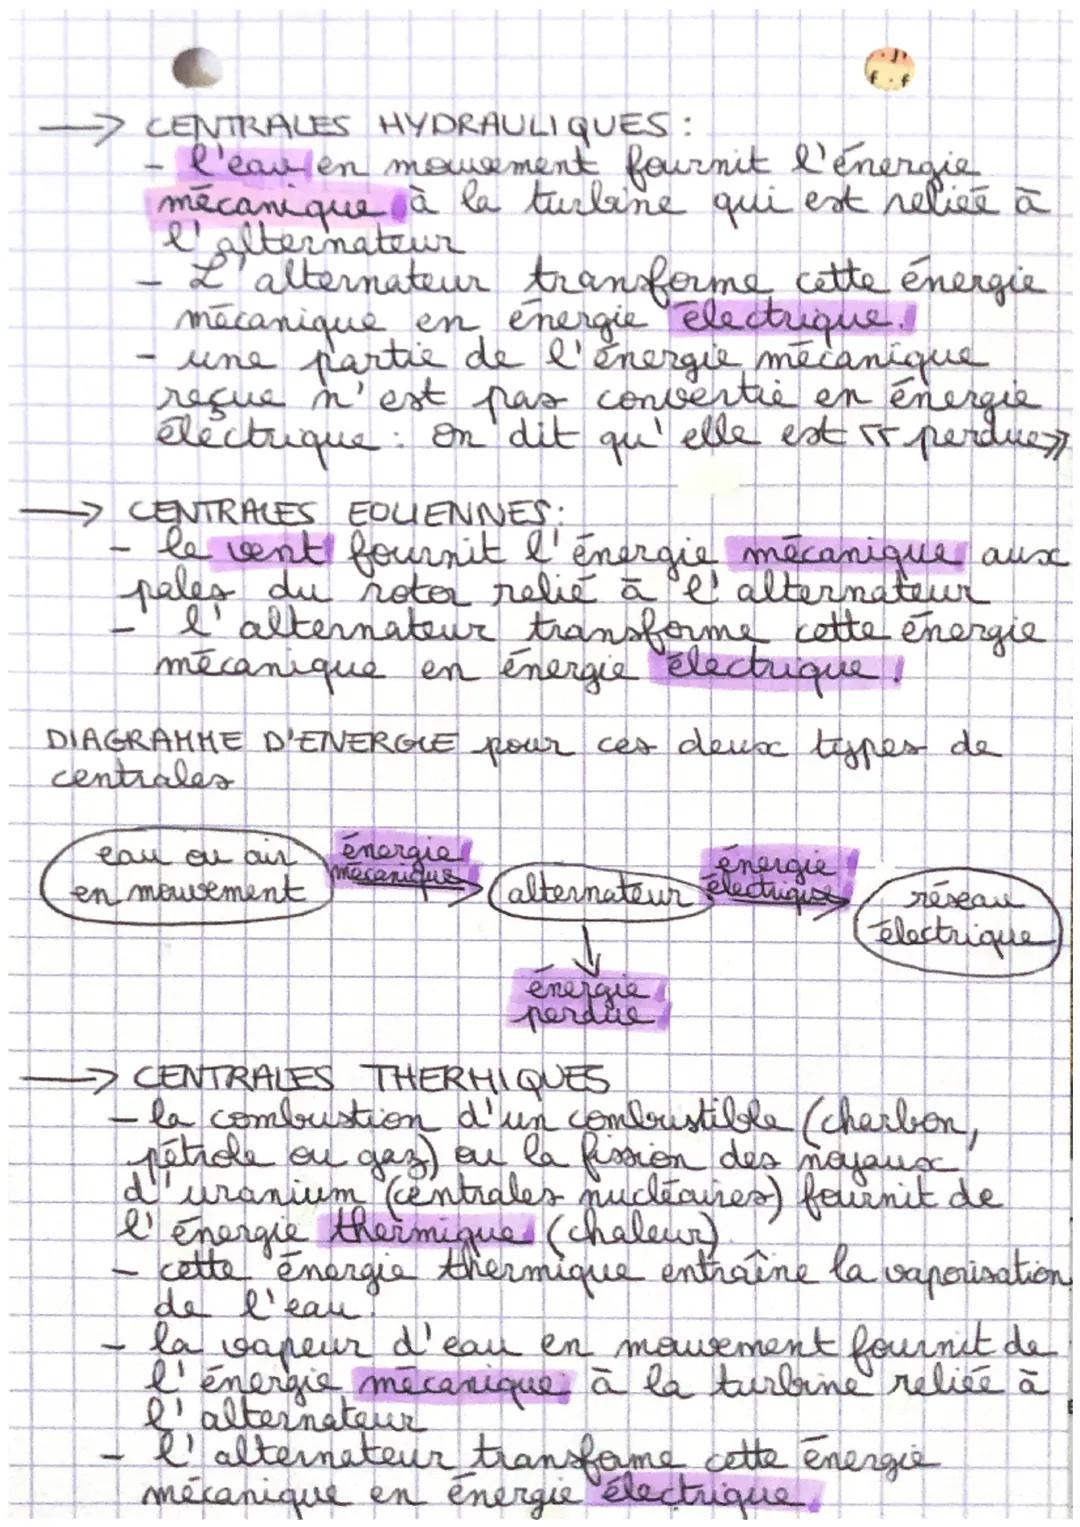 → CENTRALES HYDRAULIQUES :
- l'eau en mouvement fournit l'énergie
mécanique à la turbine qui est reliée à
l'alternateur
- L'alternateur transforme cette énergie
mécanique en énergie électrique.
- une partie de l'énergie mécanique
reçue n'est pas convertie en énergie
électrique : on dit qu'elle est « perdue »
→ CENTRALES EOLIENNES :
- le vent fournit l'énergie mécanique aux
pales du rotor relié à l'alternateur
- l'alternateur transforme cette énergie
mécanique en énergie électrique.
DIAGRAMME D'ENERGIE pour ces deux types de
centrales
eau ou air
en mouvement
énergie
mécanique
alternateur
énergie
électrique
réseau
électrique
énergie
perdue
→ CENTRALES THERMIQUES
- la combustion d'un combustible (charbon,
pétrole ou gaz) ou la fission des noyaux
d'uranium (centrales nucléaires) fournit de
l'énergie thermique (chaleur).
- cette énergie thermique entraîne la vaporisation
de l'eau.
- la vapeur d'eau en mouvement fournit de
l'énergie mécanique à la turbine reliée à
l'alternateur
- l'alternateur transforme cette énergie
mécanique en énergie électrique.